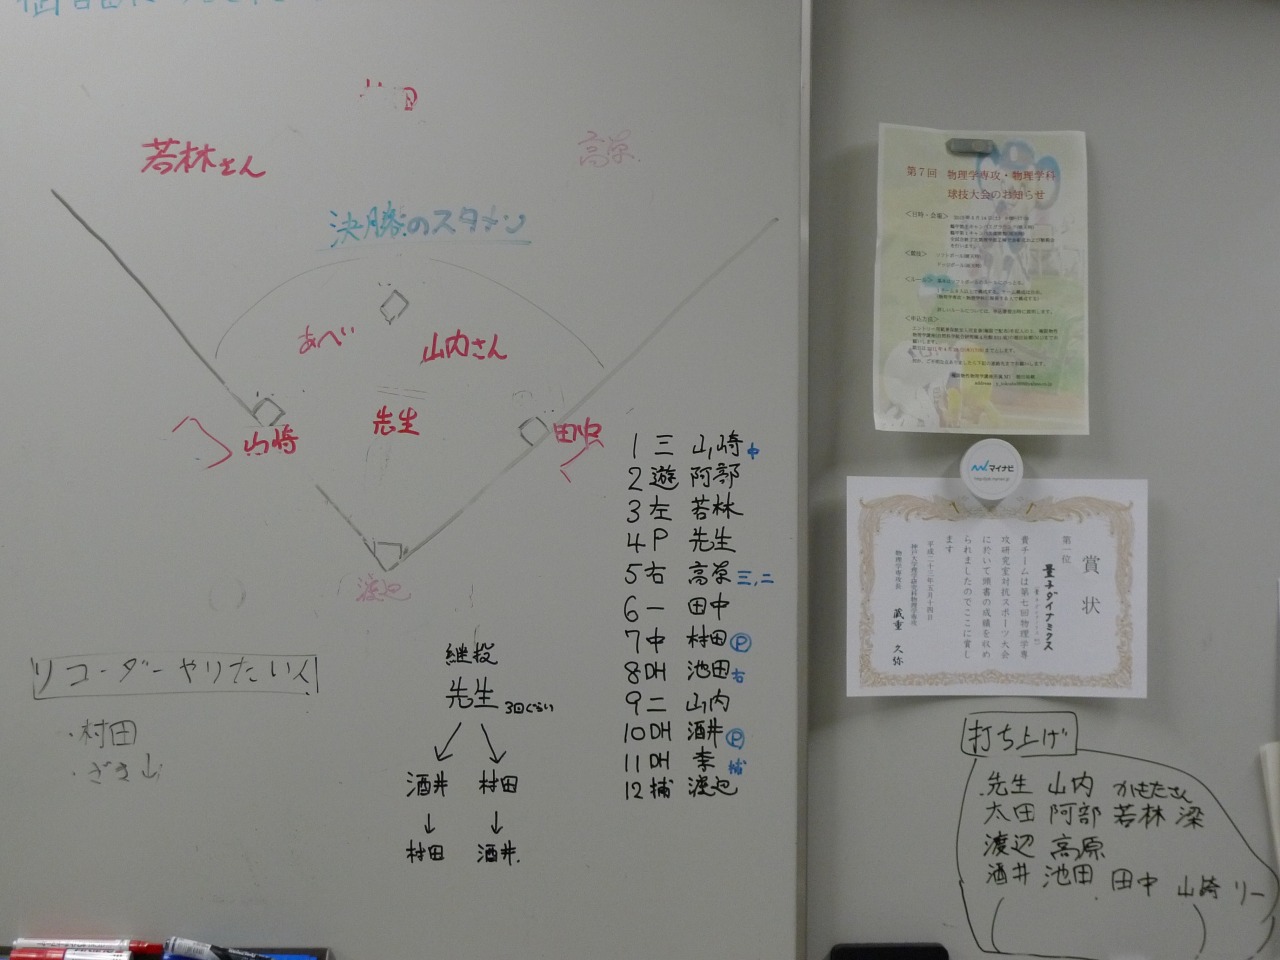 若林さん
高草
決勝のスタメン
あべ
山内さん
山崎
先生
田中
渡辺
1 三 山崎 中
2 遊 阿部
3 左 若林
4 P 先生
5 右 高草 三,二
6 一 田中
7 中 村田 P
8 DH 池田 右
9 二 山内
10 DH 酒井 P
11 DH 李 補
12 補 渡辺
継投
先生 3回ぐらい
酒井 村田
村田 酒井
リコーダーやりたい人
・村田
・ざき山
第7回 物理学専攻・物理学科
球技大会のお知らせ
<日時・会場>
<競技>
<ルール>
<申込方法>
マイナビ
賞状
第一位
量子ダイナミクス
貴チームは第七回物理学専
攻研究室対抗スポーツ大会
に於いて頭書の成績を収め
られましたのでここに賞し
ます
平成二十三年五月十四日
神戸大学理学研究科物理学専攻
物理学専攻長
蔵重 久弥
打ち上げ
先生 山内 かもたさん
太田 阿部 若林 梁
渡辺 高原
酒井 池田 田中 山崎 リー